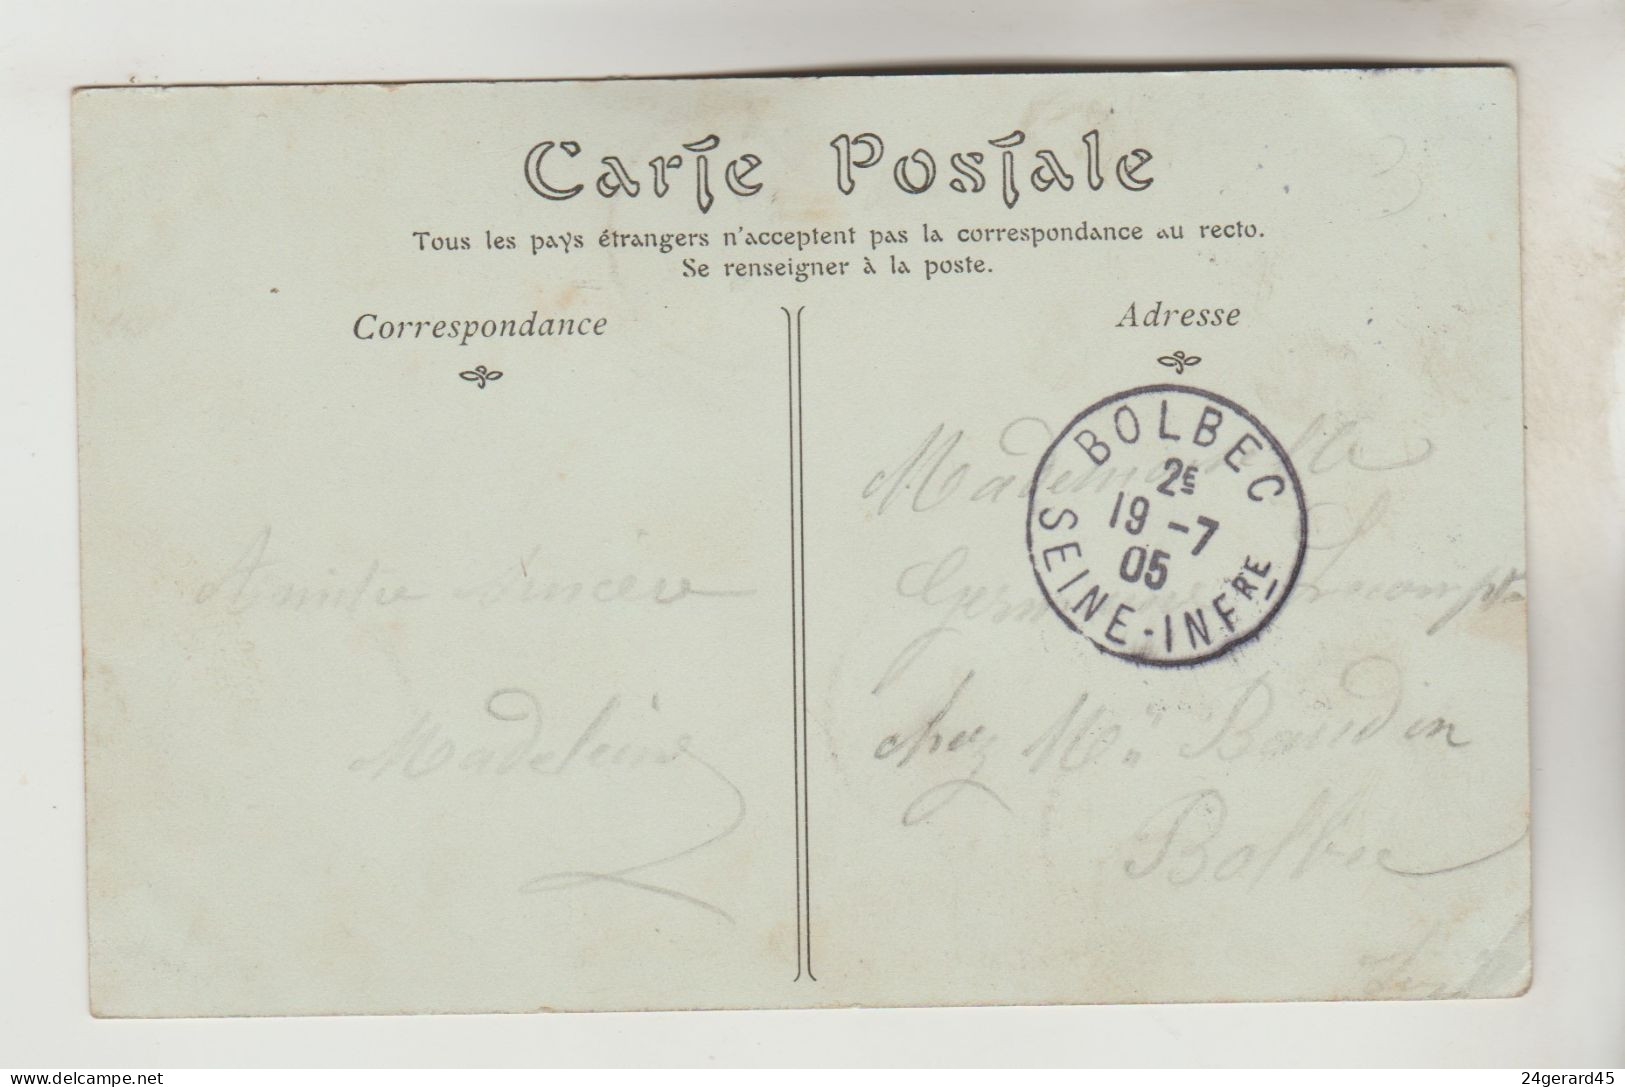 Carte Postale
Tous les pays étrangers n'acceptent pas la correspondance au recto.
Se renseigner à la poste.
Correspondance
Adresse
BOLBEC
2E
19 -7
05
SEINE-INFRE
Mademoiselle
Germaine Lecompte
chez Mr Baudin
Bolbec
Amitié sincère
Madeleine
delcampe.net
24gerard45